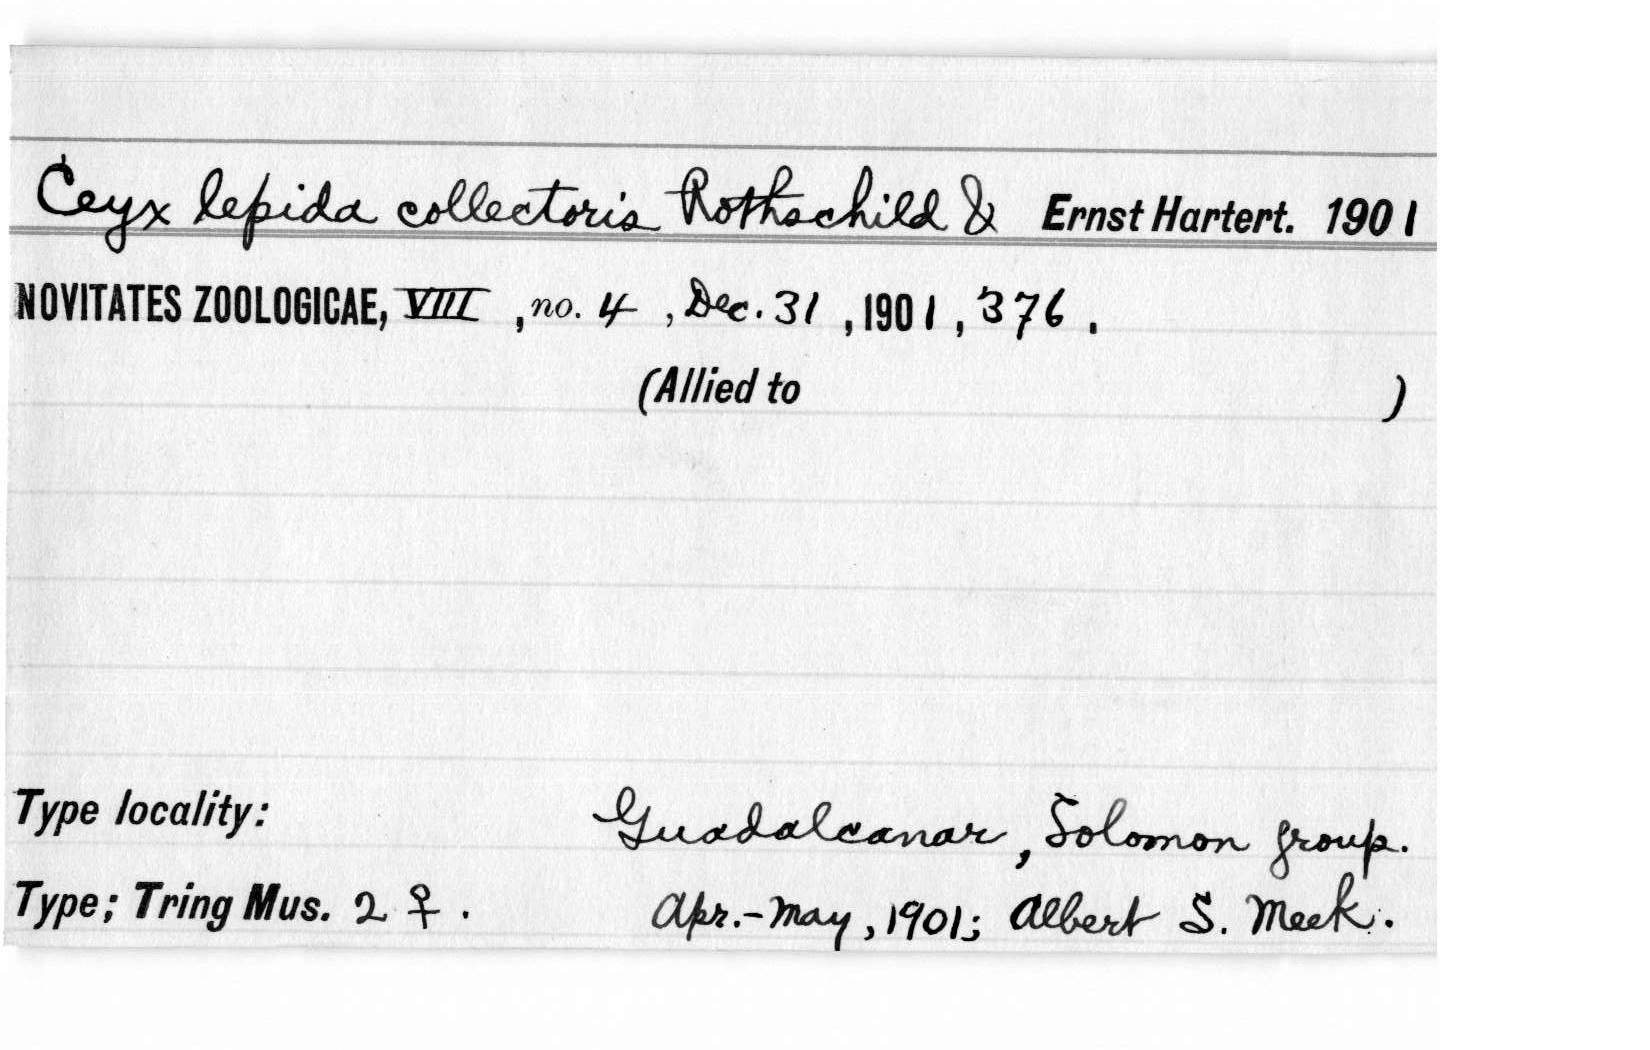 Ceyx lepida collectoris Rothschild & Ernst Hartert. 1901
NOVITATES ZOOLOGICAE, VIII, no. 4, Dec. 31, 1901, 376.
(Allied to )
Type locality: Guadalcanar, Solomon group.
Type; Tring Mus. 2 ♀. Apr.-May, 1901; Albert S. Meek.